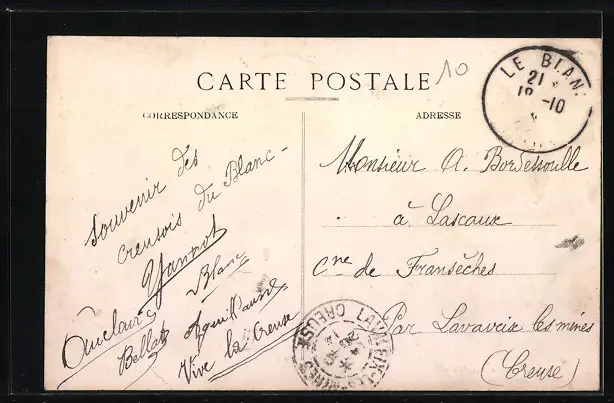 10
CARTE POSTALE
CORRESPONDANCE
ADRESSE
LE BLANC
21
18 -10
Souvenir des
Creusois du Blanc -
Yannot
Blanc
Auclair
Vive la Creuse
Monsieur A. Bordessoulle
à Lascaux
Cne de Fransèches
Par Lavaveix les mines
(Creuse)
LAVAVEIX-LES-MINES CREUSE